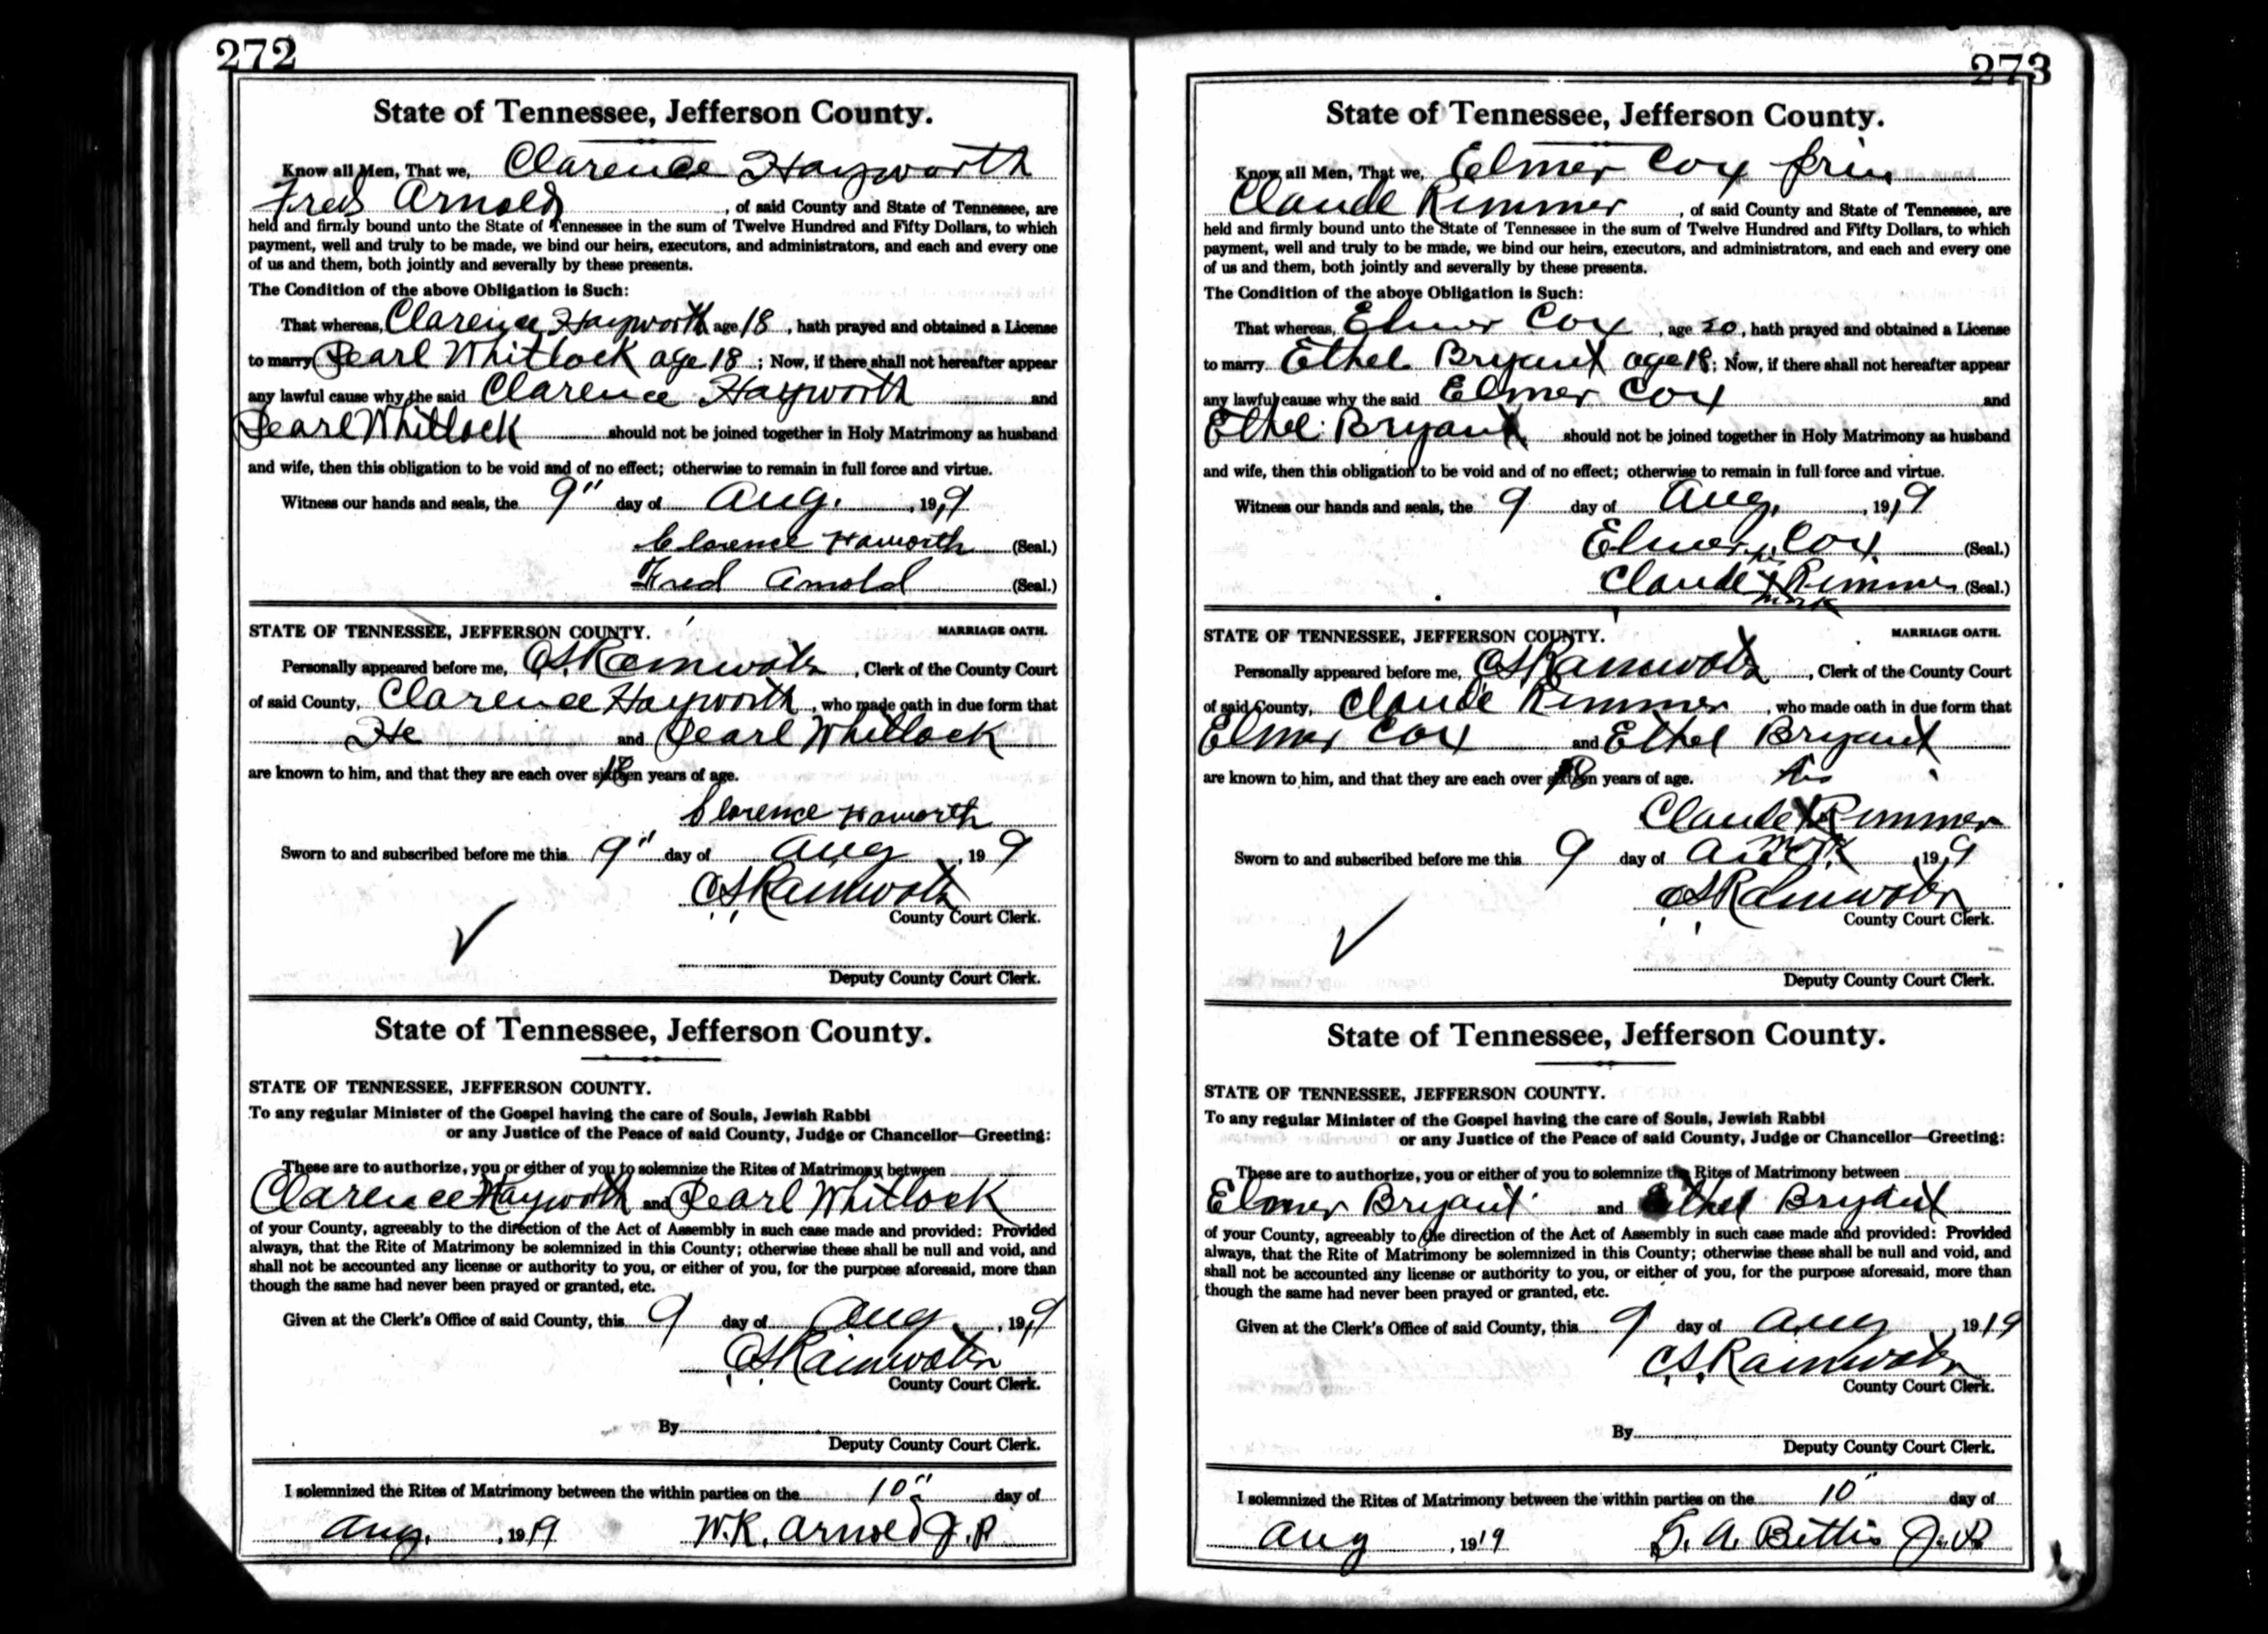 272
State of Tennessee, Jefferson County.
Know all Men, That we, Clarence Hayworth
Fred Arnold, of said County and State of Tennessee, are
held and firmly bound unto the State of Tennessee in the sum of Twelve Hundred and Fifty Dollars, to which
payment, well and truly to be made, we bind our heirs, executors, and administrators, and each and every one
of us and them, both jointly and severally by these presents.
The Condition of the above Obligation is Such:
That whereas, Clarence Hayworth age 18, hath prayed and obtained a License
to marry Pearl Whitlock age 18; Now, if there shall not hereafter appear
any lawful cause why the said Clarence Hayworth and
Pearl Whitlock should not be joined together in Holy Matrimony as husband
and wife, then this obligation to be void and of no effect; otherwise to remain in full force and virtue.
Witness our hands and seals, the 9" day of Aug., 1919
Clarence Haworth (Seal.)
Fred Arnold (Seal.)
STATE OF TENNESSEE, JEFFERSON COUNTY. MARRIAGE OATH.
Personally appeared before me, C.S. Rainwater, Clerk of the County Court
of said County, Clarence Hayworth, who made oath in due form that
He and Pearl Whitlock
are known to him, and that they are each over 18 years of age.
Clarence Haworth
Sworn to and subscribed before me this 9" day of Aug, 19 9
C.S. Rainwater
County Court Clerk.
Deputy County Court Clerk.
State of Tennessee, Jefferson County.
STATE OF TENNESSEE, JEFFERSON COUNTY.
To any regular Minister of the Gospel having the care of Souls, Jewish Rabbi
or any Justice of the Peace of said County, Judge or Chancellor—Greeting:
These are to authorize, you or either of you to solemnize the Rites of Matrimony between
Clarence Hayworth and Pearl Whitlock
of your County, agreeably to the direction of the Act of Assembly in such case made and provided: Provided
always, that the Rite of Matrimony be solemnized in this County; otherwise these shall be null and void, and
shall not be accounted any license or authority to you, or either of you, for the purpose aforesaid, more than
though the same had never been prayed or granted, etc.
Given at the Clerk's Office of said County, this 9 day of Aug, 1919
C.S. Rainwater
County Court Clerk.
By
Deputy County Court Clerk.
I solemnized the Rites of Matrimony between the within parties on the 10" day of
Aug., 1919 W.K. Arnold J.P.
273
State of Tennessee, Jefferson County.
Know all Men, That we, Elmer Cox prin
Claude Rimmer, of said County and State of Tennessee, are
held and firmly bound unto the State of Tennessee in the sum of Twelve Hundred and Fifty Dollars, to which
payment, well and truly to be made, we bind our heirs, executors, and administrators, and each and every one
of us and them, both jointly and severally by these presents.
The Condition of the above Obligation is Such:
That whereas, Elmer Cox, age 20, hath prayed and obtained a License
to marry Ethel Bryant age 18; Now, if there shall not hereafter appear
any lawful cause why the said Elmer Cox and
Ethel Bryant should not be joined together in Holy Matrimony as husband
and wife, then this obligation to be void and of no effect; otherwise to remain in full force and virtue.
Witness our hands and seals, the 9 day of Aug., 1919
Elmer Cox (Seal.)
his
Claude x Rimmer (Seal.)
mark
STATE OF TENNESSEE, JEFFERSON COUNTY. MARRIAGE OATH.
Personally appeared before me, C.S. Rainwater, Clerk of the County Court
of said County, Claude Rimmer, who made oath in due form that
Elmer Cox and Ethel Bryant
are known to him, and that they are each over 18 years of age.
his
Claude x Rimmer
mark
Sworn to and subscribed before me this 9 day of Aug, 1919
C.S. Rainwater
County Court Clerk.
Deputy County Court Clerk.
State of Tennessee, Jefferson County.
STATE OF TENNESSEE, JEFFERSON COUNTY.
To any regular Minister of the Gospel having the care of Souls, Jewish Rabbi
or any Justice of the Peace of said County, Judge or Chancellor—Greeting:
These are to authorize, you or either of you to solemnize the Rites of Matrimony between
Elmer Bryant and Ethel Bryant
of your County, agreeably to the direction of the Act of Assembly in such case made and provided: Provided
always, that the Rite of Matrimony be solemnized in this County; otherwise these shall be null and void, and
shall not be accounted any license or authority to you, or either of you, for the purpose aforesaid, more than
though the same had never been prayed or granted, etc.
Given at the Clerk's Office of said County, this 9 day of Aug, 1919
C.S. Rainwater
County Court Clerk.
By
Deputy County Court Clerk.
I solemnized the Rites of Matrimony between the within parties on the 10" day of
Aug, 1919 A. Bettis J.P.